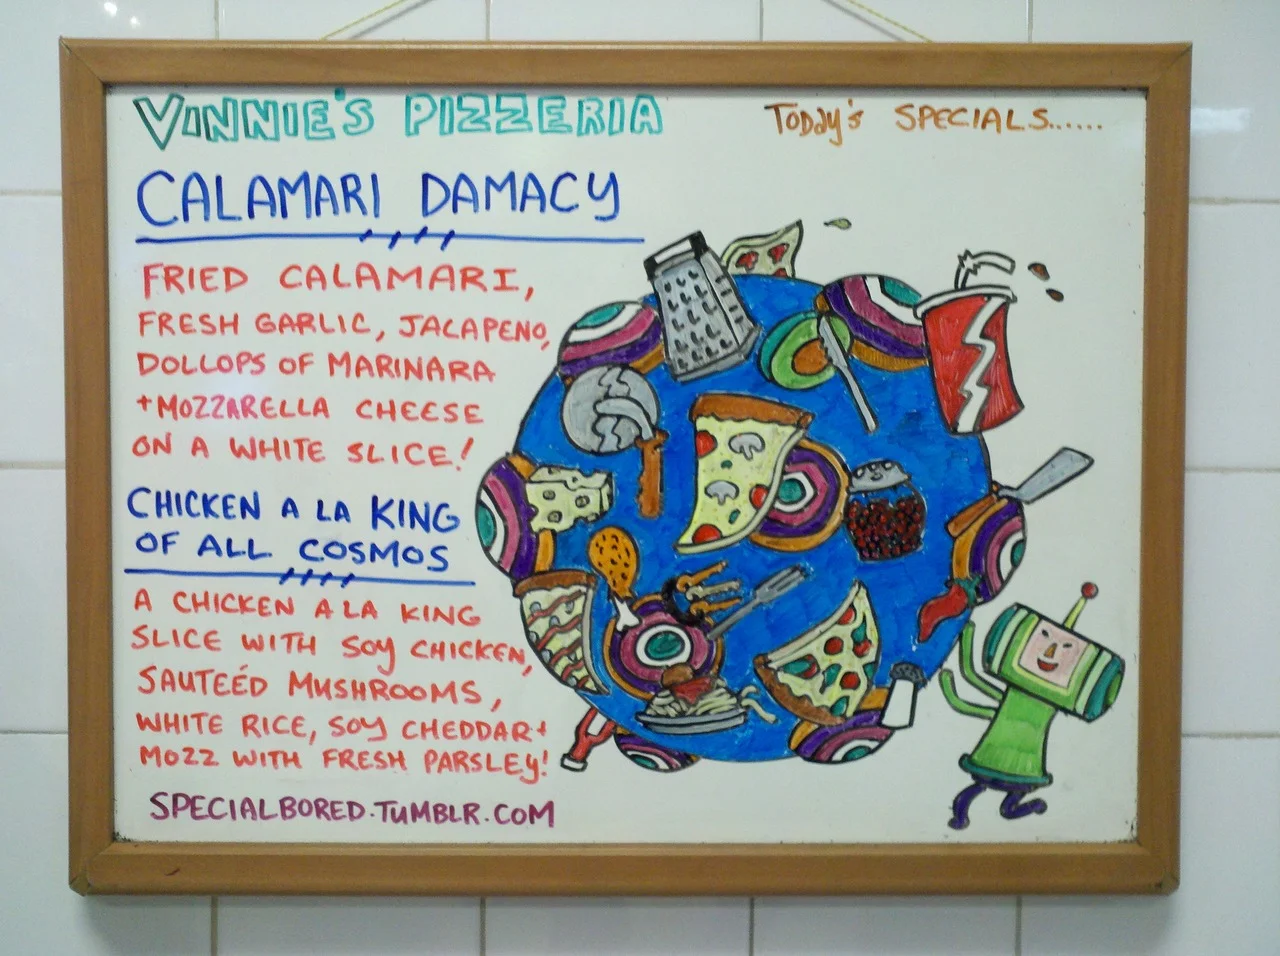 VINNIE'S PIZZERIA
TODAY'S SPECIALS......
CALAMARI DAMACY
FRIED CALAMARI,
FRESH GARLIC, JALAPENO,
DOLLOPS OF MARINARA
+MOZZARELLA CHEESE
ON A WHITE SLICE!
CHICKEN A LA KING
OF ALL COSMOS
A CHICKEN A LA KING
SLICE WITH SOY CHICKEN,
SAUTEÉD MUSHROOMS,
WHITE RICE, SOY CHEDDAR+
MOZZ WITH FRESH PARSLEY!
SPECIALBORED.TUMBLR.COM